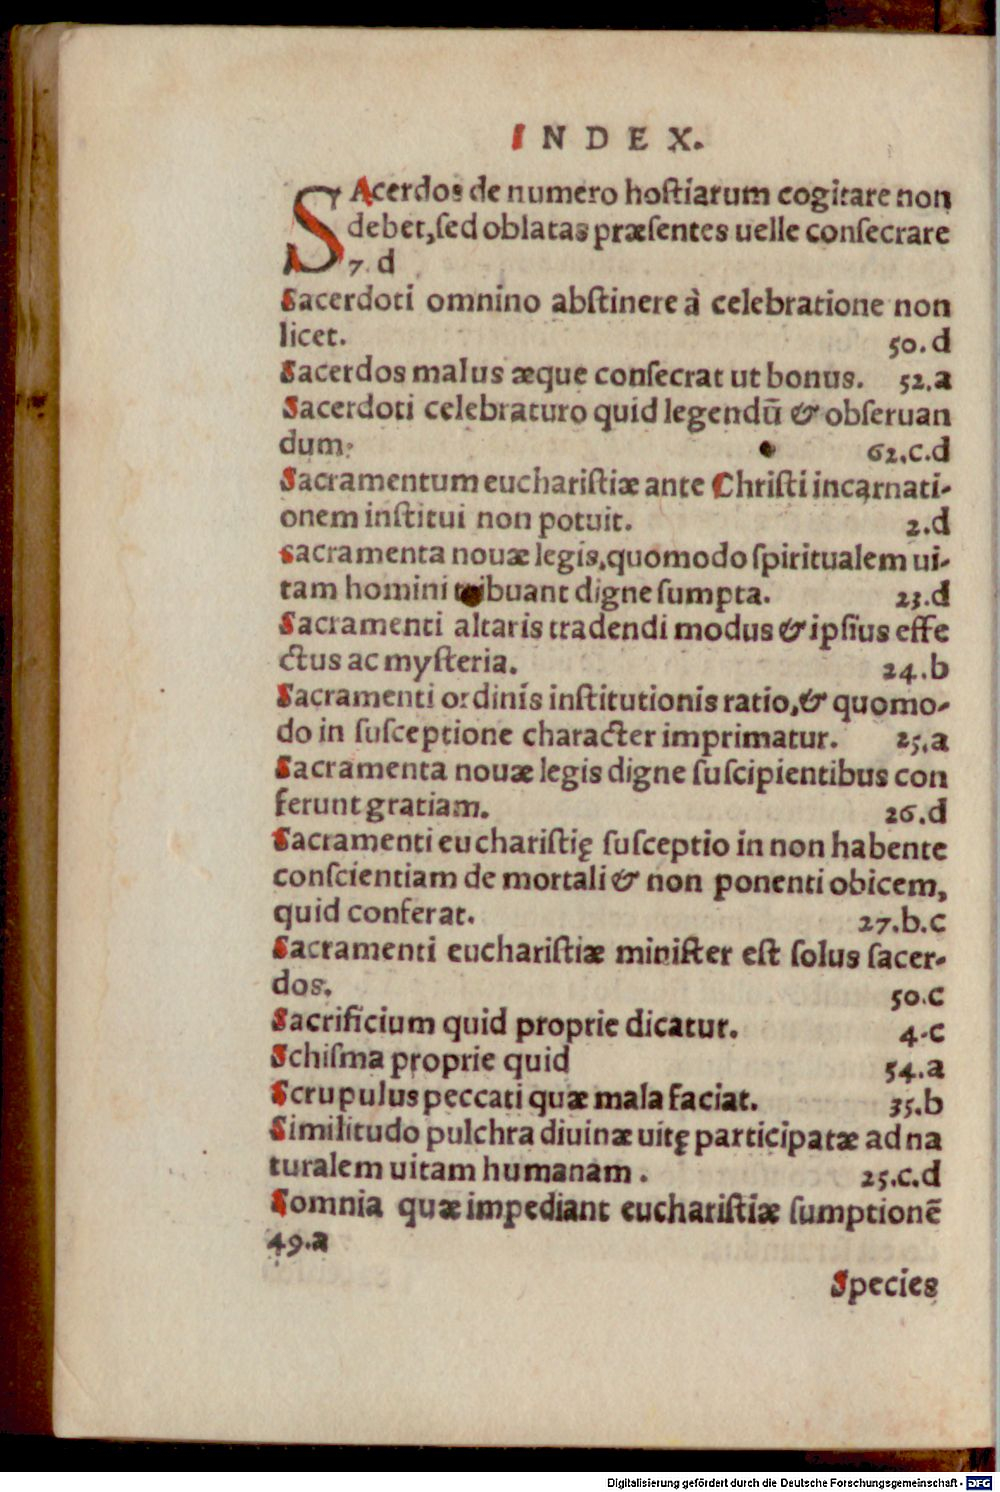 INDEX.
SAcerdos de numero hostiarum cogitare non
debet, sed oblatas præsentes uelle consecrare
7.d
Sacerdoti omnino abstinere à celebratione non
licet. 50.d
Sacerdos malus æque consecrat ut bonus. 52.a
Sacerdoti celebraturo quid legendū & obseruan
dum. 62.c.d
Sacramentum eucharistiæ ante Christi incarnati-
onem institui non potuit. 2.d
sacramenta nouæ legis, quomodo spiritualem ui-
tam homini tribuant digne sumpta. 23.d
Sacramenti altaris tradendi modus & ipsius effe
ctus ac mysteria. 24.b
Sacramenti ordinis institutionis ratio, & quomo-
do in susceptione character imprimatur. 25.a
Sacramenta nouæ legis digne suscipientibus con
ferunt gratiam. 26.d
Sacramenti eucharistię susceptio in non habente
conscientiam de mortali & non ponenti obicem,
quid conferat. 27.b.c
Sacramenti eucharistiæ minister est solus sacer-
dos. 50.c
Sacrificium quid proprie dicatur. 4.c
Schisma proprie quid 54.a
Scrupulus peccati quæ mala faciat. 35.b
Similitudo pulchra diuinæ uitę participatæ ad na
turalem uitam humanam. 25.c.d
Somnia quæ impediant eucharistiæ sumptionē
49.a
Species
Digitalisierung gefördert durch die Deutsche Forschungsgemeinschaft - DFG